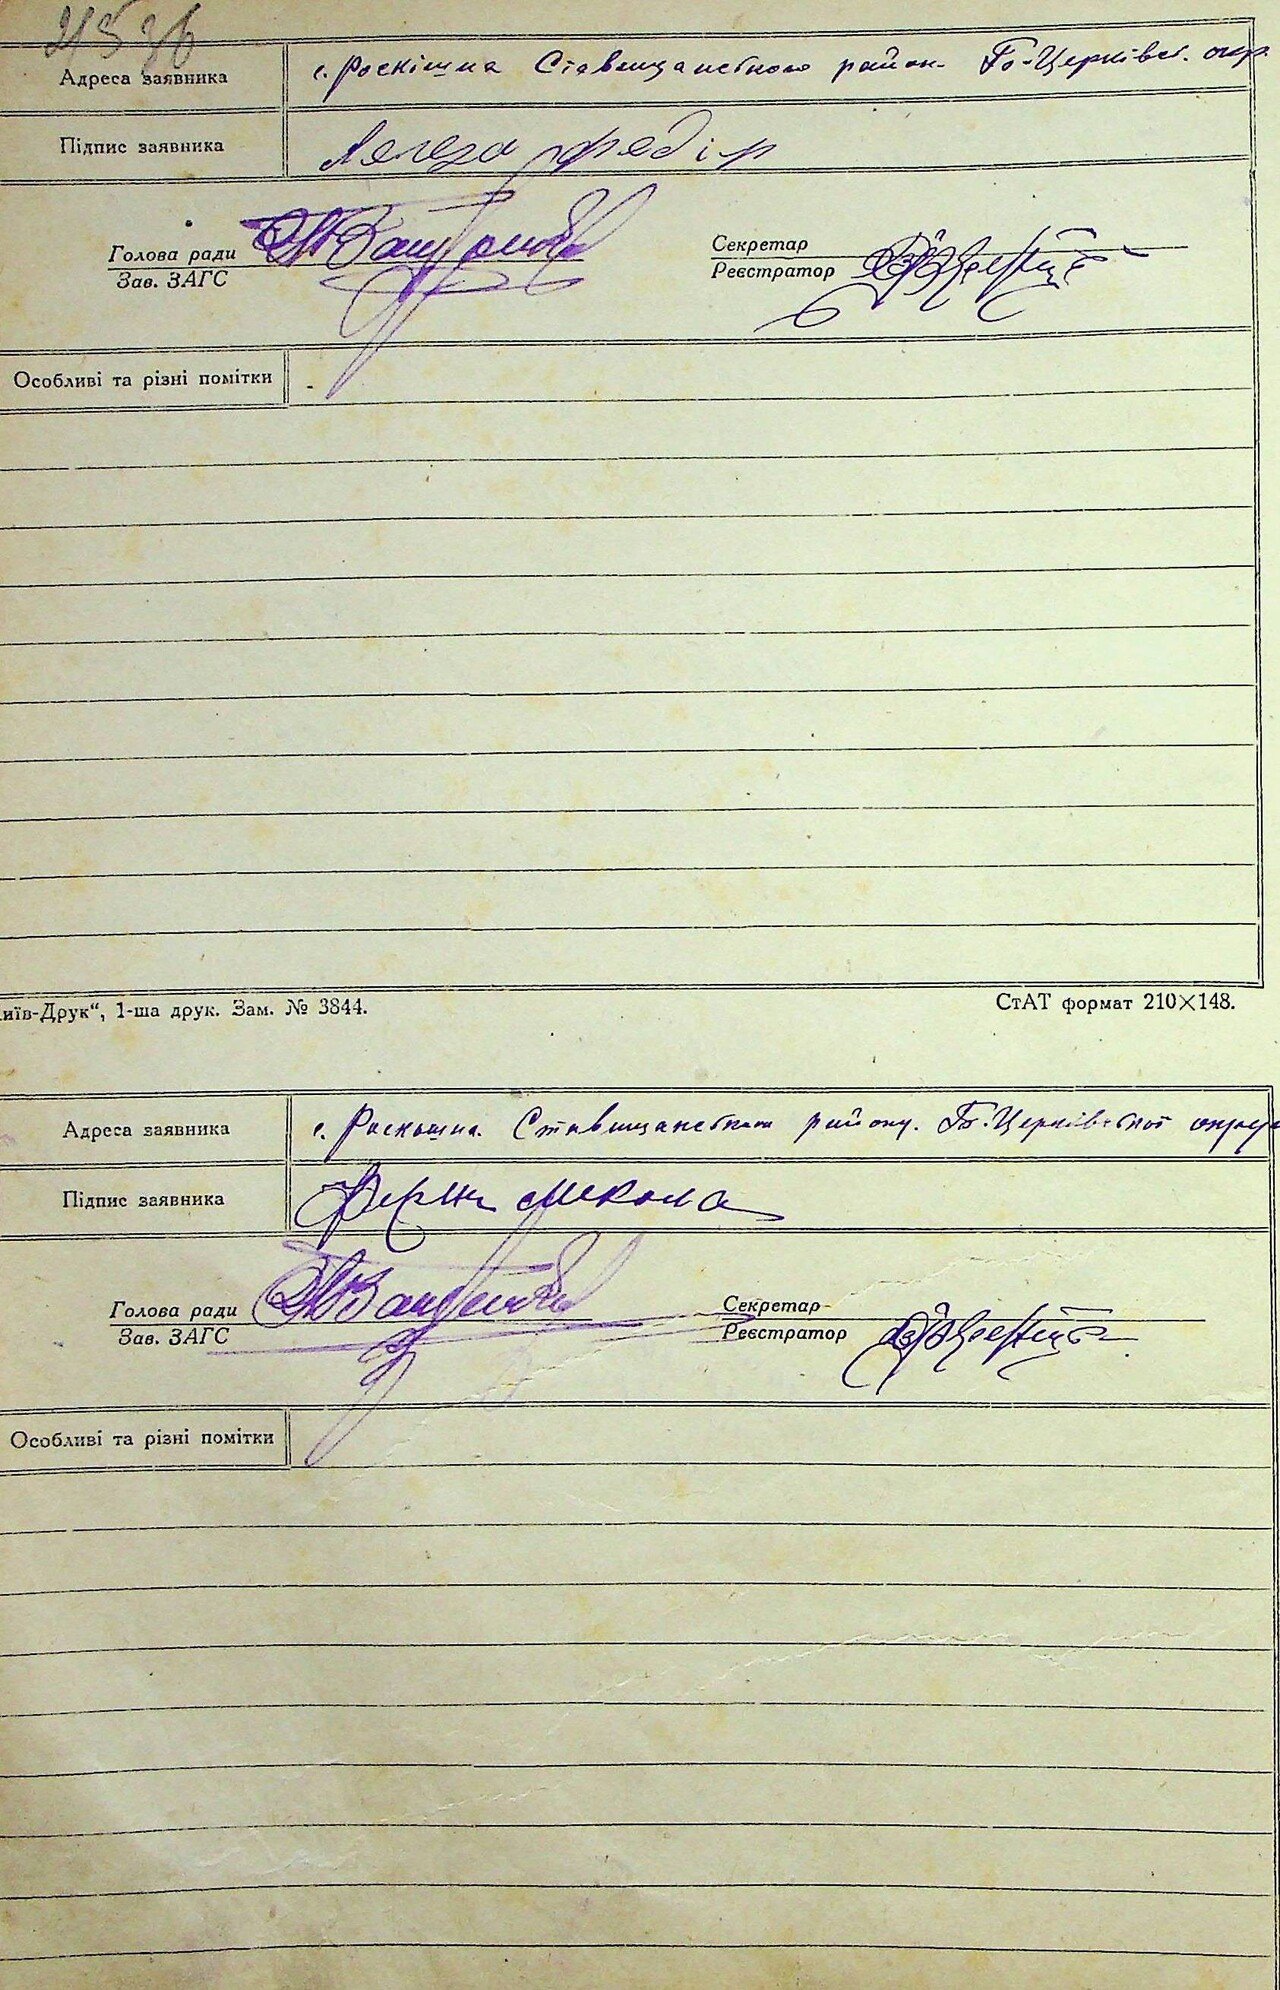 Адреса заявника с. Роскішна Ставищанського район. Б-Церківс. окр.
Підпис заявника Легеза Федір
Голова ради Секретар
Зав. ЗАГС Реєстратор
Особливі та різні помітки -
иїв-Друк“, 1-ша друк. Зам. № 3844. СтАТ формат 210×148.
Адреса заявника с. Роскошна Ставищанського району. Б-Церківської округ
Підпис заявника Микола
Голова ради Секретар
Зав. ЗАГС Реєстратор
Особливі та різні помітки